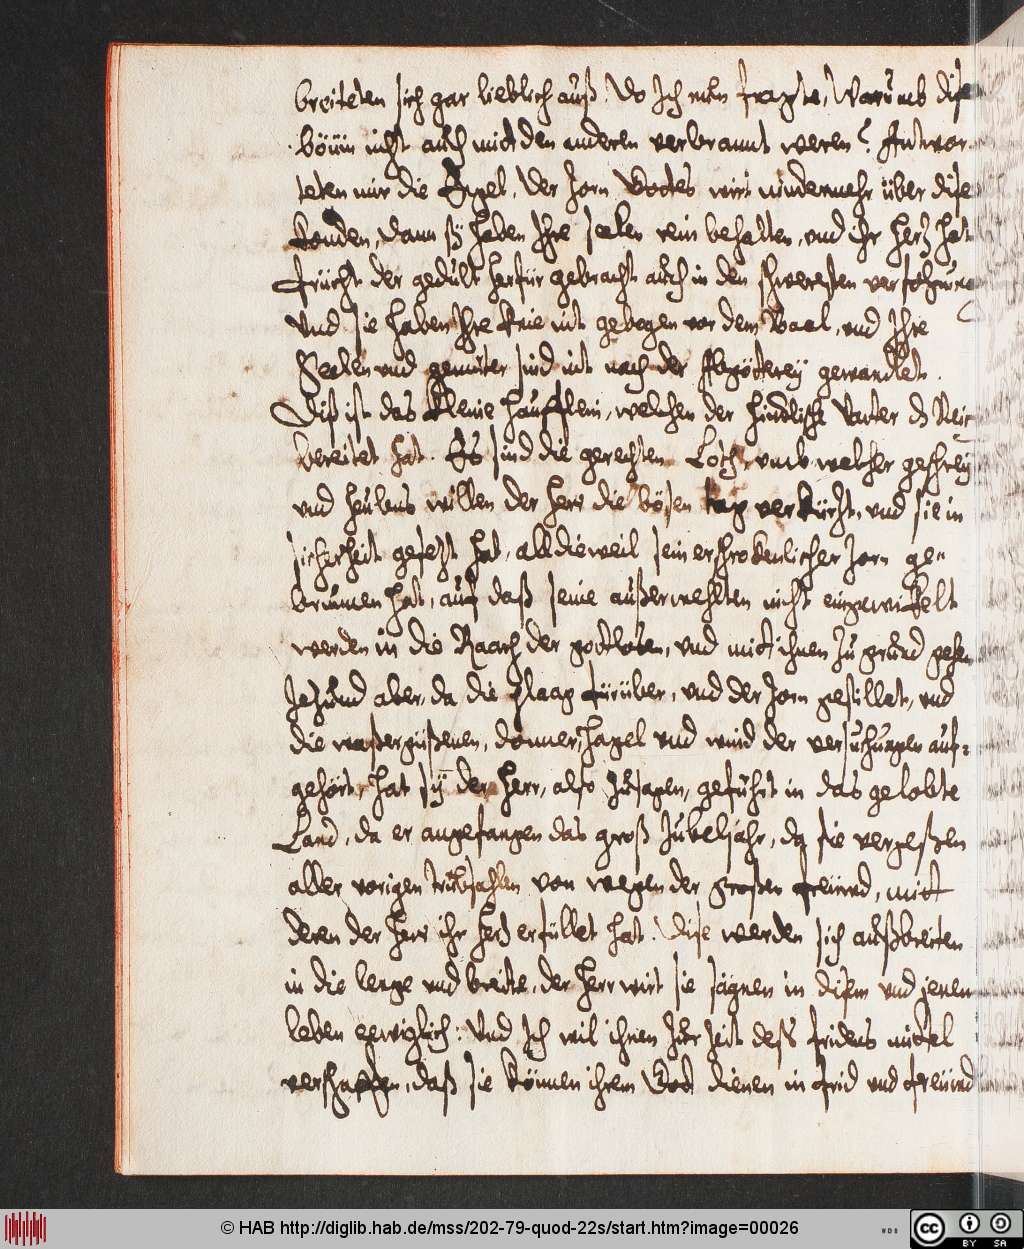 breiteten sich gar lieblich auß. Do Ich nun fragte, Warumb dise
böüm nicht auch mit den anderen verbrannt weren? Antwor-
teten mir die Engel, Der Zorn Gottes wirt nimdermehr über dise
konden, dann sÿ haben Ihre seelen rein behalten, und ihr Herz hat
frücht der gedult herfür gebracht auch in den schweresten verfolgung
Und sie haben Ihre knie nit gebogen vor dem Baal, und Ihre
Seelen und gemüter sind nit nach der Abgötterey gewandlet.
Diß ist das kleine Häufflein, welchem der himlische Vatter dz Reich
bereitet hat. Es sind die gerechten Loth, umb welcher geschrey
und heulens willen der Herr die bösen tag verkürtzt, und sie in
sicherheit gesetzt hat, alldieweil sein erschrokenlicher Zorn ge-
brunnen hat, auf daß seine außerwehlten nicht eingewikelt
werden in die Raach der gottlosen, und mit ihnen zu grund gehen
Jezund aber, da die plaag fürüber, und der Zorn gestillet, und
die waßergüßenen, donner, hagel und wind der versuchungen auf-
gehört, hat sÿ der Herr, also zusagen, geführt in das gelobte
Land, da er angefangen das groß Jubeljahr, da sie vergeßen
aller vorigen trübsahlen von wegen der großen freüwd, mit
deren der Herr ihr Herz erfüllet hat. Dise werden sich außbreiten
in die lenge und breite, der Herr wirt sie sägnen in disem und jenem
leben eewiglich: Und Ich wil ihnen zur Zeit deß fridens mittel
verschaffen, daß sie können ihrem Gott dienen in frid und freüwd
© HAB http://diglib.hab.de/mss/202-79-quod-22s/start.htm?image=00026
WDB
cc BY SA